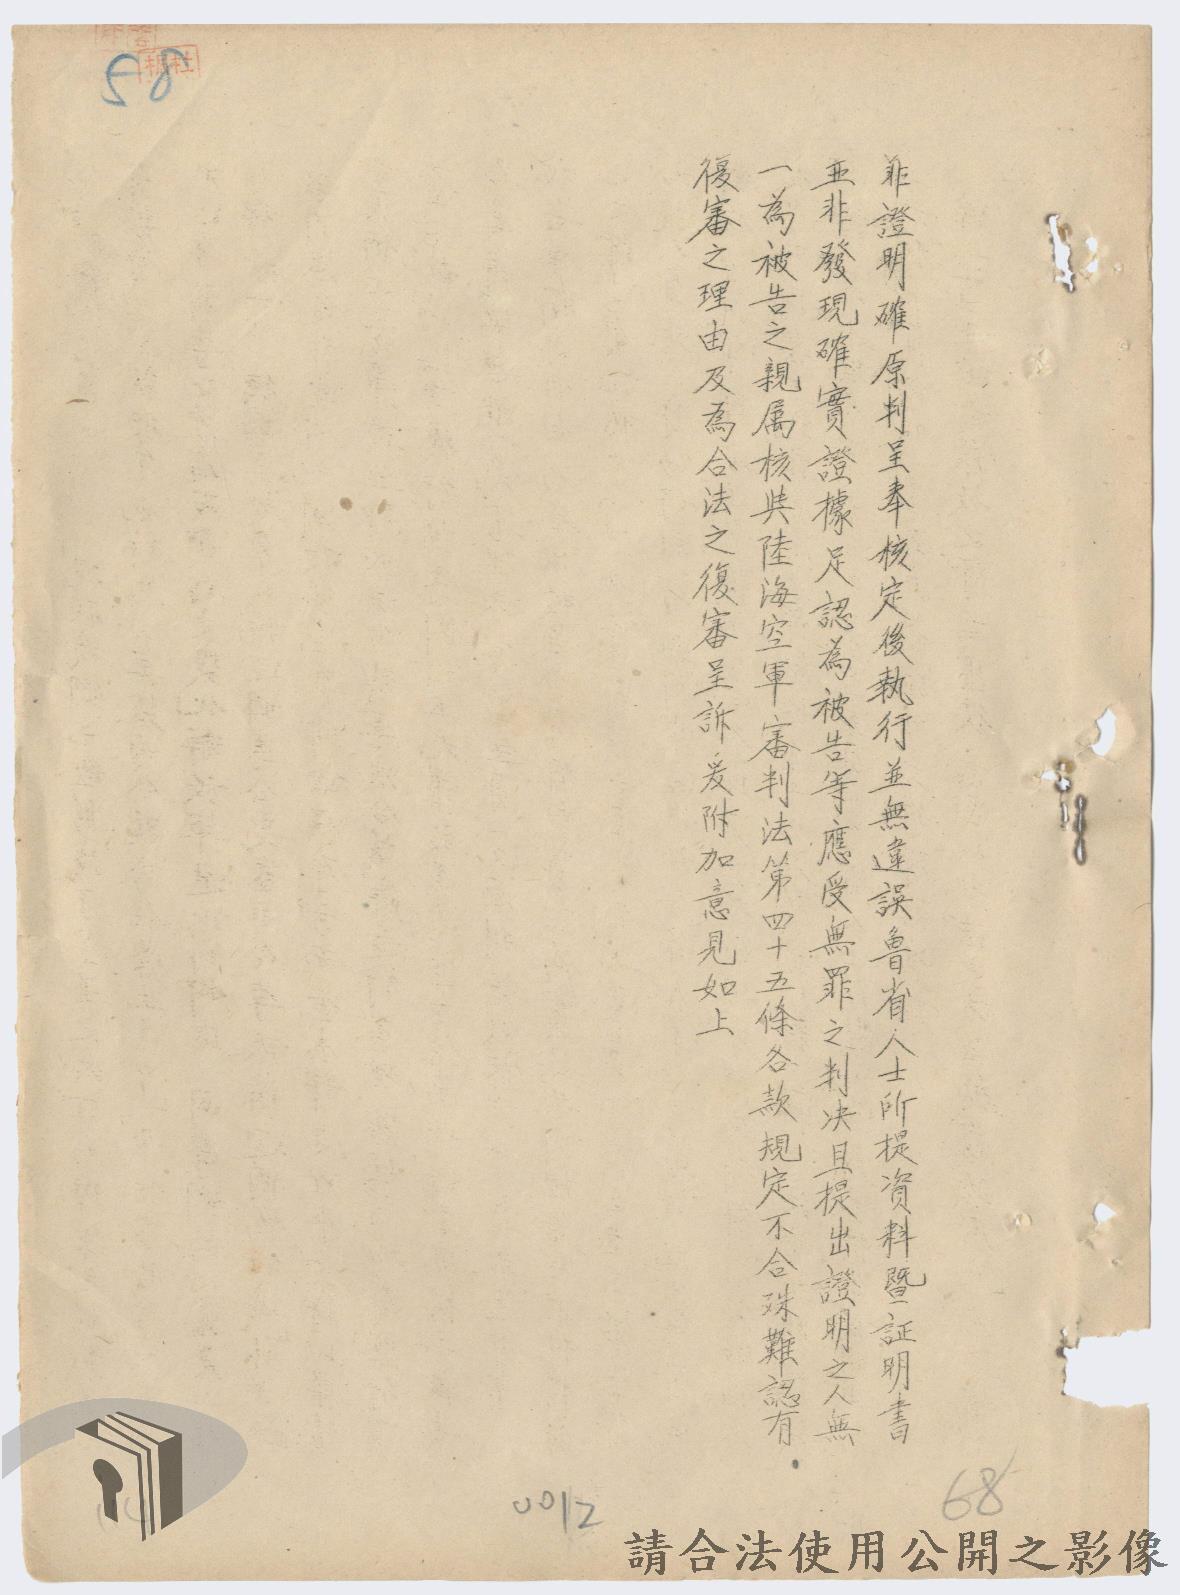 非證明確原判呈奉核定後執行並無違誤魯省人士所提資料暨証明書
並非發現確實證據足認為被告等應受無罪之判决且提出證明之人無
一為被告之親属核與陸海空軍審判法第四十五條各款規定不合殊難認有
復審之理由及為合法之復審呈訴爰附加意見如上
58
68
0012
請合法使用公開之影像